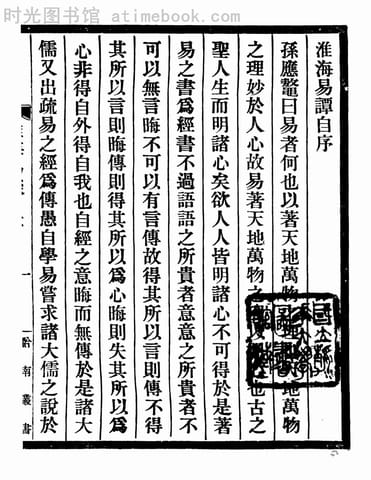 时光图书馆 - atimebook.com -
淮海易譚自序
孫應鼇曰易者何也以著天地萬物之理也天地萬物
之理妙於人心故易著天地萬物之也古之
聖人生而明諸心矣欲人人皆明諸心不可得於是著
易之書爲經書不過語語之所貴者意意之所貴者不
可以無言晦不可以有言傳故得其所以言則傳不得
其所以言則晦傳則得其所以爲心晦則失其所以爲
心非得自外得自我也自經之意晦而無傳於是諸大
儒又出疏易之經爲傳愚自學易嘗求諸大儒之說於
一
黔南叢書